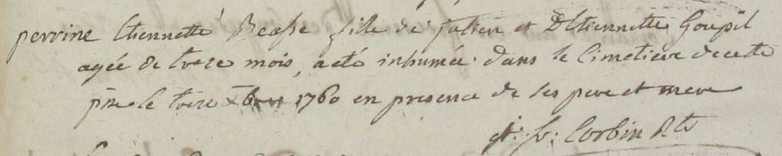 perrine Etiennette Beasse fille de julien et D'Etiennette Goupil
agée de treze mois, a eté inhumée dans le cimetiere de cette
psse le treze 1760 en presence de ses pere et mere
Corbin